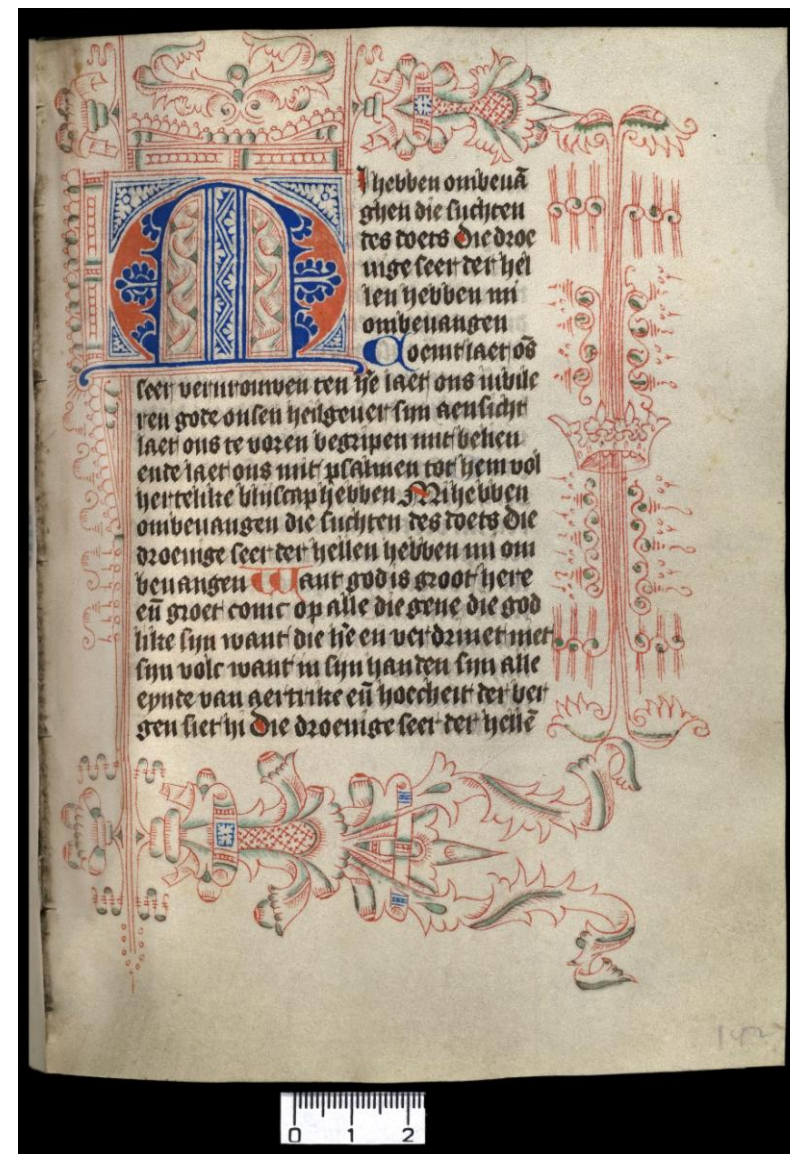 MI hebben ombeuā
ghen die suchten
des doets Die droe
uige seer der hel
len hebben mi
ombeuangen
Coemt laet ōs
seer verurouwen den hē laet ons iubile
ren gode onsen heilgeuer sijn aensicht
laet ons te voren begripen mit belien
ende laet ons mit psalmen tot hem vol
hertelike blijscap hebben Mi hebben
ombeuangen die suchten des doets Die
droeuige seer der hellen hebben mi om
beuangen Want god is groot here
eñ groet coninc op alle die gene die god
like sijn want die hē en verdriuet niet
sijn volc want in sijn handen sijn alle
eynde van aertrike eñ hoecheit der ber
gen siet hi Die droeuige seer der hellē
142
0 1 2